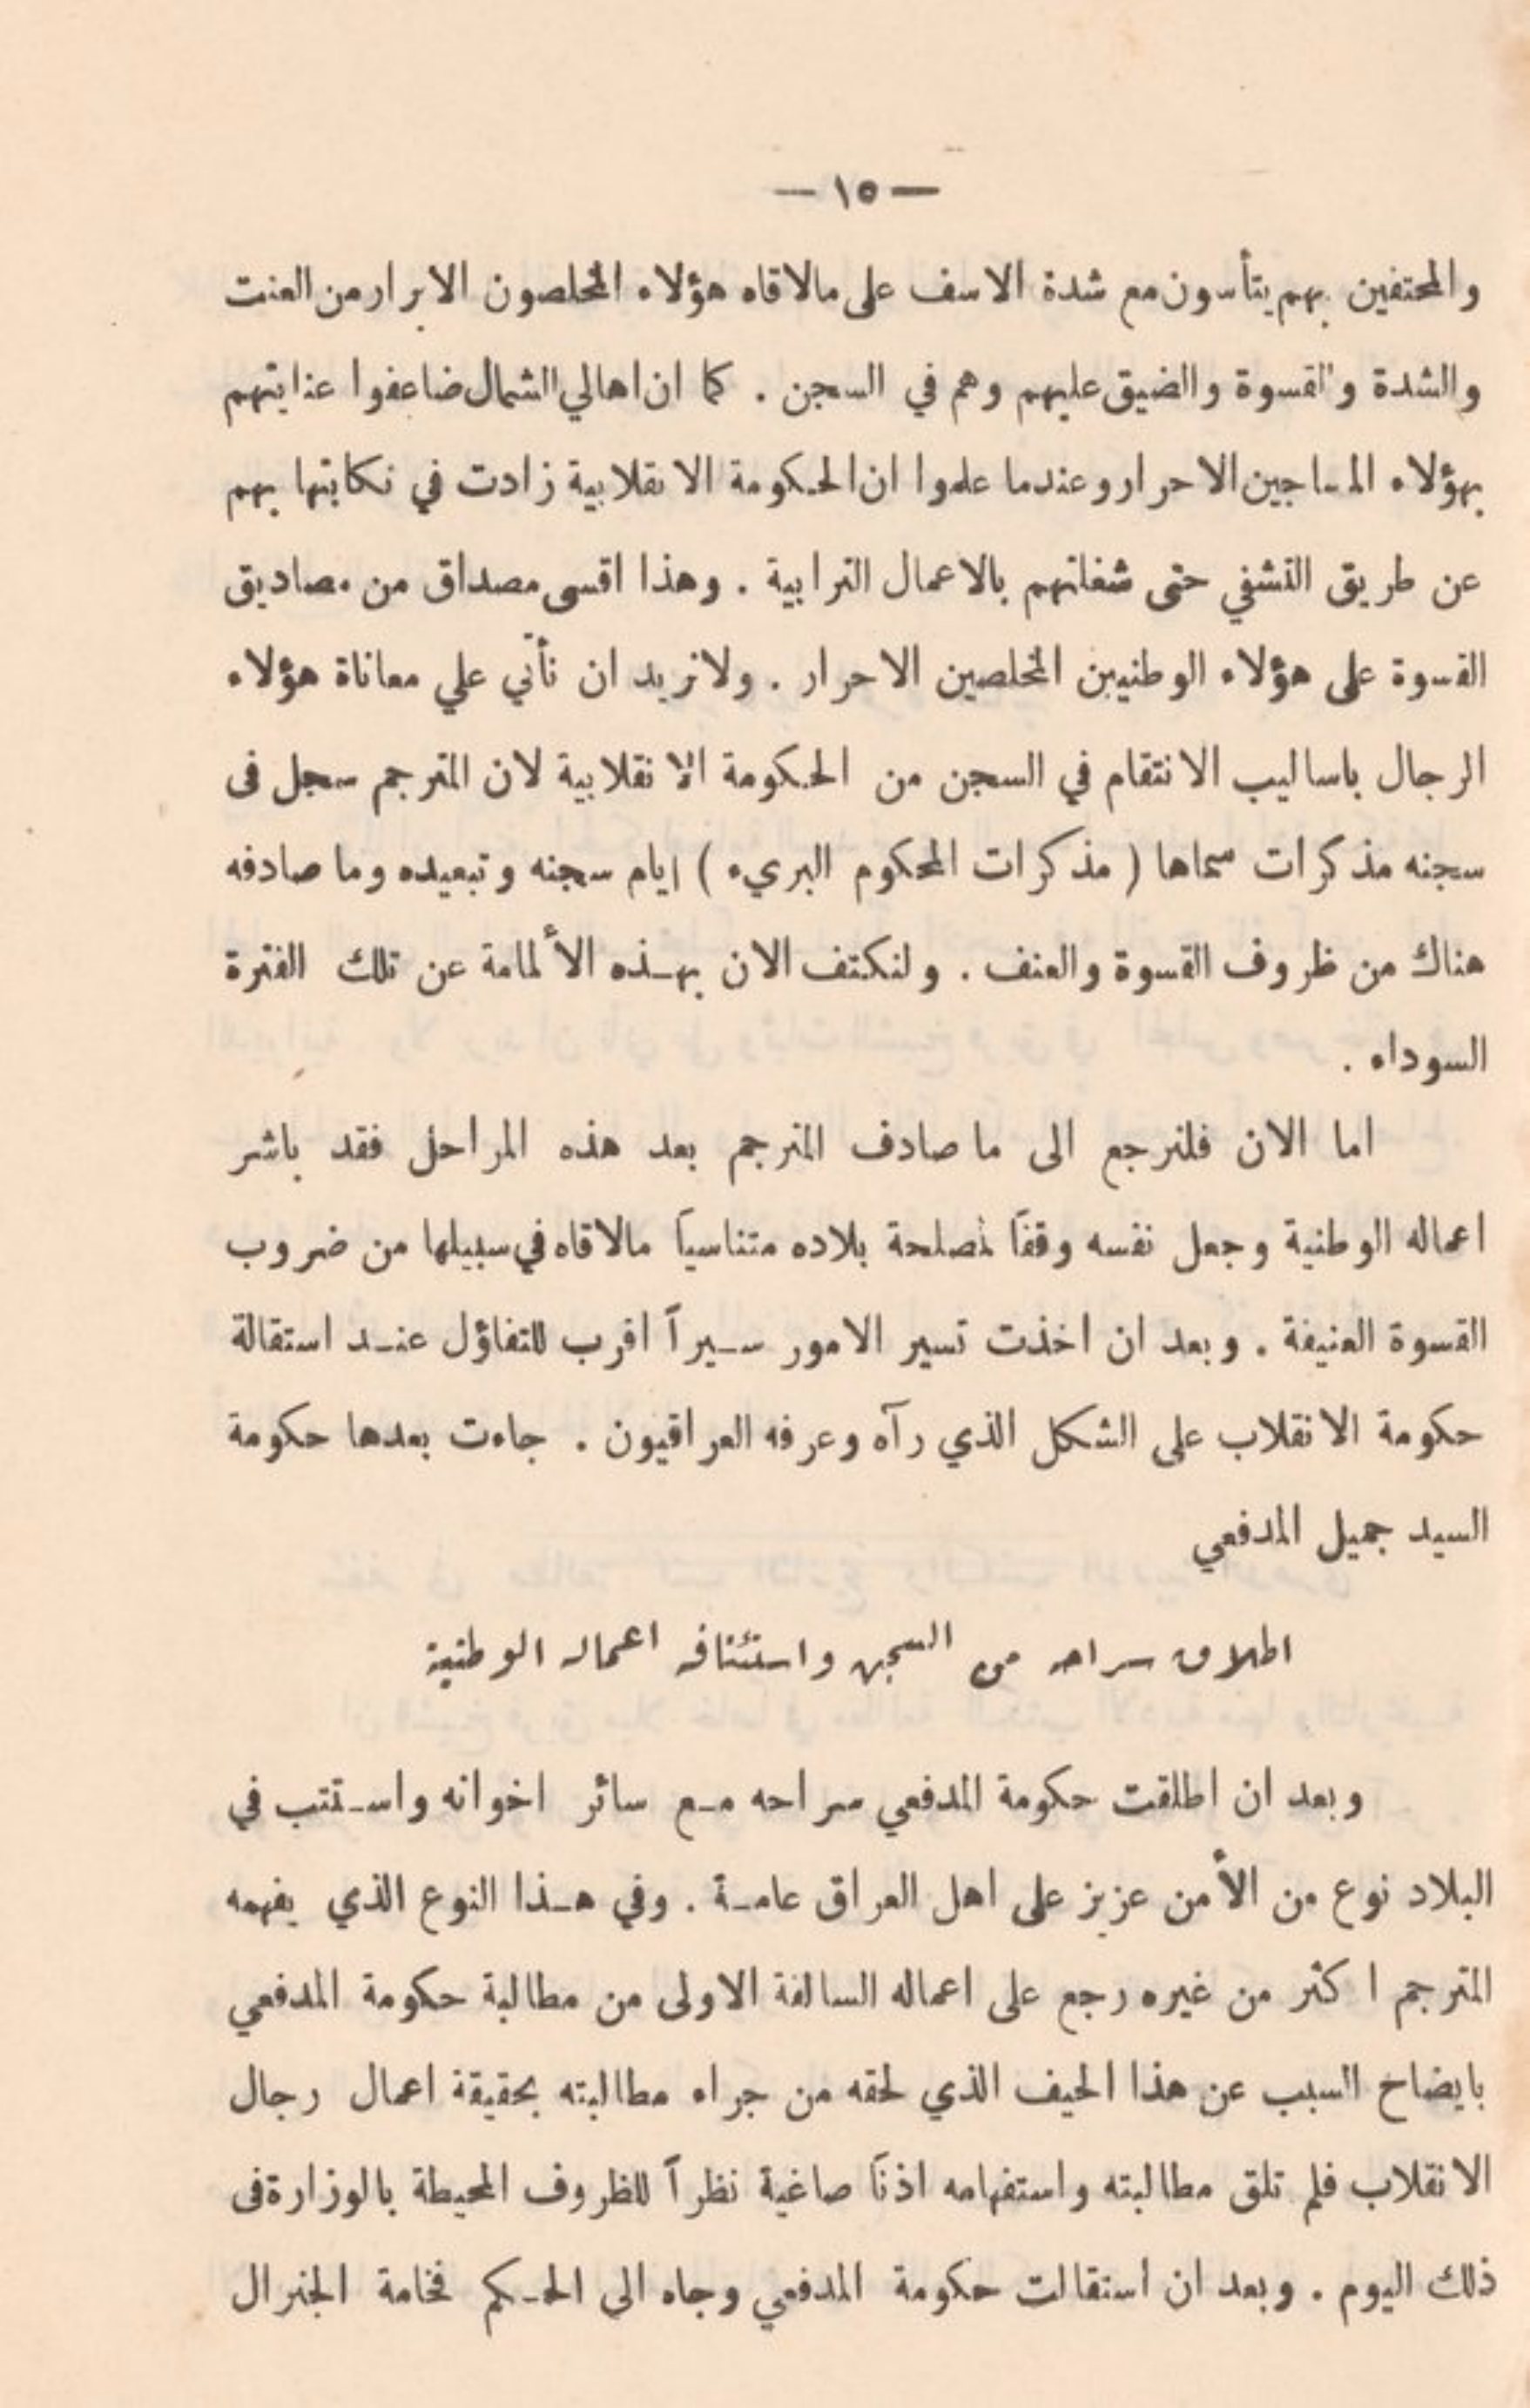 — ١٥ —
والمحتفين بهم يتأسون مع شدة الاسف على مالاقاه هؤلاء المخلصون الابرار من العنت
والشدة والقسوة والضيق عليهم وهم في السجن . كما ان اهالي الشمال ضاعفوا عنايتهم
بهؤلاء المساجين الاحرار وعندما علموا ان الحكومة الانقلابية زادت في نكايتها بهم
عن طريق التشفي حتى شغلتهم بالاعمال الترابية . وهذا اقسى مصداق من مصاديق
القسوة على هؤلاء الوطنيين المخلصين الاحرار . ولانريد ان نأتي علي معاناة هؤلاء
الرجال باساليب الانتقام في السجن من الحكومة الانقلابية لان المترجم سجل فى
سجنه مذكرات سماها ( مذكرات المحكوم البريء ) ايام سجنه وتبعيده وما صادفه
هناك من ظروف القسوة والعنف . ولنكتف الان بهذه الألمامة عن تلك الفترة
السوداء .
اما الان فلنرجع الى ما صادف المترجم بعد هذه المراحل فقد باشر
اعماله الوطنية وجعل نفسه وقفاً لمصلحة بلاده متناسياً مالاقاه في سبيلها من ضروب
القسوة العنيفة . وبعد ان اخذت تسير الامور سيراً اقرب للتفاؤل عند استقالة
حكومة الانقلاب على الشكل الذي رآه وعرفه العراقيون . جاءت بعدها حكومة
السيد جميل المدفعي
اطلاق سراحه من السجن واستئنافه اعماله الوطنية
وبعد ان اطلقت حكومة المدفعي سراحه مع سائر اخوانه واستتب في
البلاد نوع من الأمن عزيز على اهل العراق عامة . وفي هذا النوع الذي يفهمه
المترجم اكثر من غيره رجع على اعماله السالفة الاولى من مطالبة حكومة المدفعي
بايضاح السبب عن هذا الحيف الذي لحقه من جراء مطالبته بحقيقة اعمال رجال
الانقلاب فلم تلق مطالبته واستفهامه اذناً صاغية نظراً للظروف المحيطة بالوزارة فى
ذلك اليوم . وبعد ان استقالت حكومة المدفعي وجاء الى الحكم فخامة الجنرال